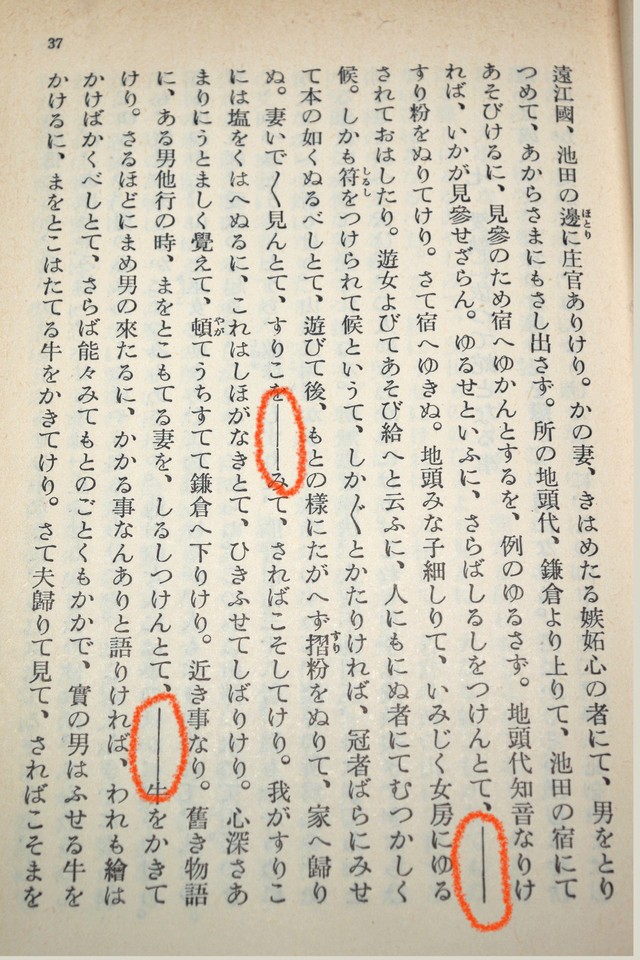 37
遠江國、池田の邊に庄官ありけり。かの妻、きはめたる嫉妬心の者にて、男をとり
ほとり
つめて、あからさまにもさし出さず。所の地頭代、鎌倉より上りて、池田の宿にて
あそびけるに、見參のため宿へゆかんとするを、例のゆるさず。地頭代知音なりけ
れば、いかが見參せざらん。ゆるせといふに、さらばしるしをつけんとて、───
すり粉をぬりてけり。さて宿へゆきぬ。地頭みな子細しりて、いみじく女房にゆる
されておはしたり。遊女よびてあそび給へと云ふに、人にもにぬ者にてむつかしく
候。しかも符をつけられて候というて、しか〲とかたりければ、冠者ばらにみせ
しるし
て本の如くぬるべしとて、遊びて後、もとの樣にたがへず摺粉をぬりて、家へ歸り
すり
ぬ。妻いで〳〵見んとて、すりこを───みて、さればこそしてけり。我がすりこ
には塩をくはへぬるに、これはしほがなきとて、ひきふせてしばりけり。心深さあ
まりにうとましく覺えて、頓てうちすてて鎌倉へ下りけり。近き事なり。舊き物語
やが
に、ある男他行の時、まをとこもてる妻を、しるしつけんとて、───牛をかきて
けり。さるほどにまめ男の來たるに、かかる事なんありと語りければ、われも繪は
かけばかくべしとて、さらば能々みてもとのごとくもかかで、實の男はふせる牛を
かけるに、まをとこはたてる牛をかきてけり。さて夫歸りて見て、さればこそまを